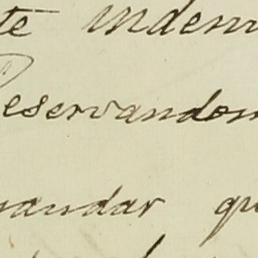 te indem
Reservandom
mandar qu